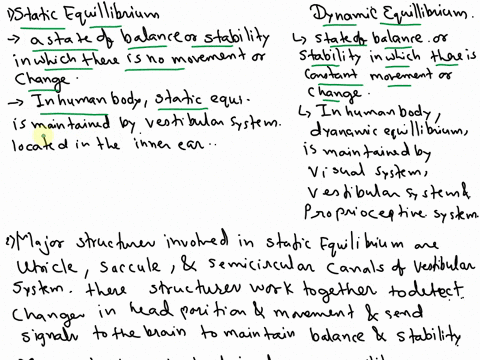 1) Static Equillibrium
→ a state of balance or stability
in which there is no movement or
change.
→ In human body, static equi.
is maintained by vestibular system.
located in the inner ear..
Dynamic Equilibrium.
↳ state of balance or
stability in which there is
constant movement or
change.
↳ In human body,
dyanamic equilibrium,
is maintained by
visual system,
vestibular system &
Proprioceptive system
2) Major structures involved in static Equilibrium are
Utricle, Saccule, & semicircular canals of vestibular
System. there structures work together to detect
changes in head position & movement & send
signals to the brain to maintain balance & stability